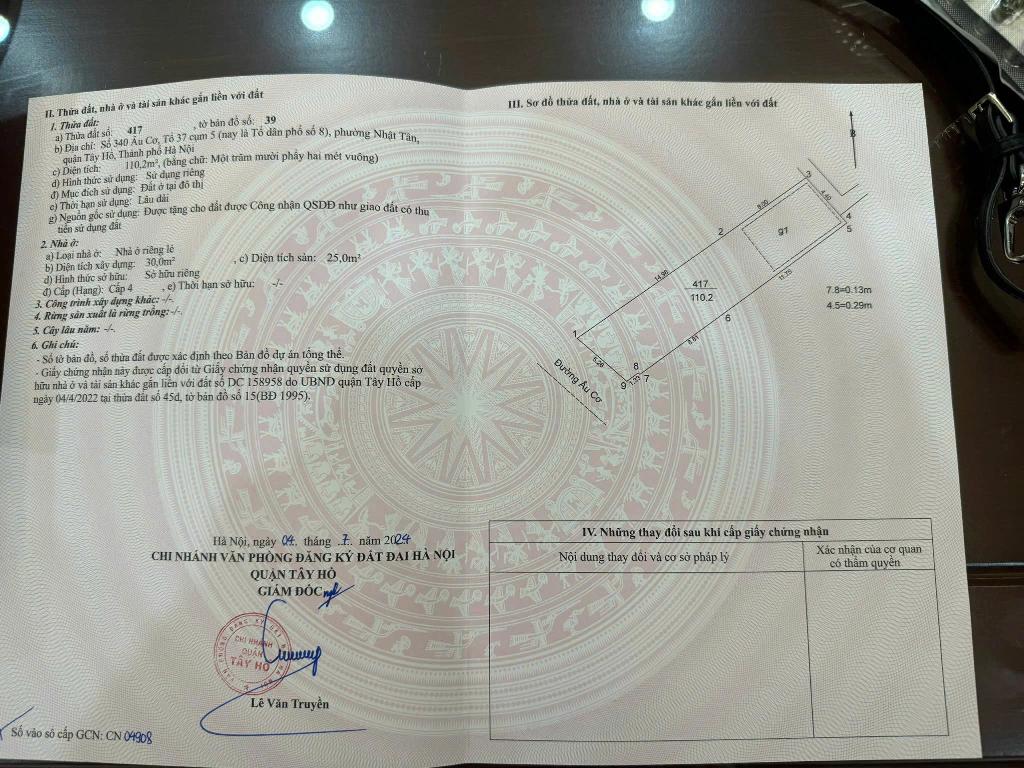 II. Thửa đất, nhà ở và tài sản khác gắn liền với đất
1. Thửa đất:
a) Thửa đất số: 417 , tờ bản đồ số: 39
b) Địa chỉ: Số 340 Âu Cơ, Tổ 37 cụm 5 (nay là Tổ dân phố số 8), phường Nhật Tân,
quận Tây Hồ, Thành phố Hà Nội
c) Diện tích: 110,2m², (bằng chữ: Một trăm mười phẩy hai mét vuông)
d) Hình thức sử dụng: Sử dụng riêng
đ) Mục đích sử dụng: Đất ở tại đô thị
e) Thời hạn sử dụng: Lâu dài
g) Nguồn gốc sử dụng: Được tặng cho đất được Công nhận QSDĐ như giao đất có thu
tiền sử dụng đất
2. Nhà ở:
a) Loại nhà ở: Nhà ở riêng lẻ
b) Diện tích xây dựng: 30,0m² , c) Diện tích sàn: 25,0m²
d) Hình thức sở hữu: Sở hữu riêng
đ) Cấp (Hạng): Cấp 4 , e) Thời hạn sở hữu: -/-
3. Công trình xây dựng khác: -/-.
4. Rừng sản xuất là rừng trồng: -/-.
5. Cây lâu năm: -/-.
6. Ghi chú:
- Số tờ bản đồ, số thửa đất được xác định theo Bản đồ dự án tổng thể.
- Giấy chứng nhận này được cấp đổi từ Giấy chứng nhận quyền sử dụng đất quyền sở
hữu nhà ở và tài sản khác gắn liền với đất số DC 158958 do UBND quận Tây Hồ cấp
ngày 04/4/2022 tại thửa đất số 45d, tờ bản đồ số 15(BĐ 1995).
Hà Nội, ngày 04. tháng .7. năm 2024
CHI NHÁNH VĂN PHÒNG ĐĂNG KÝ ĐẤT ĐAI HÀ NỘI
QUẬN TÂY HỒ
GIÁM ĐỐC
CHI NHÁNH
QUẬN
TÂY HỒ
Lê Văn Truyền
Số vào sổ cấp GCN: CN 04908
III. Sơ đồ thửa đất, nhà ở và tài sản khác gắn liền với đất
B
3
4.60
9.00
4
5
2
g1
11.75
14.98
417
110.2
7.8=0.13m
4.5=0.29m
6
1
8.81
5.29
8
9
1.33
7
Đường Âu Cơ
IV. Những thay đổi sau khi cấp giấy chứng nhận
Nội dung thay đổi và cơ sở pháp lý
Xác nhận của cơ quan
có thẩm quyền